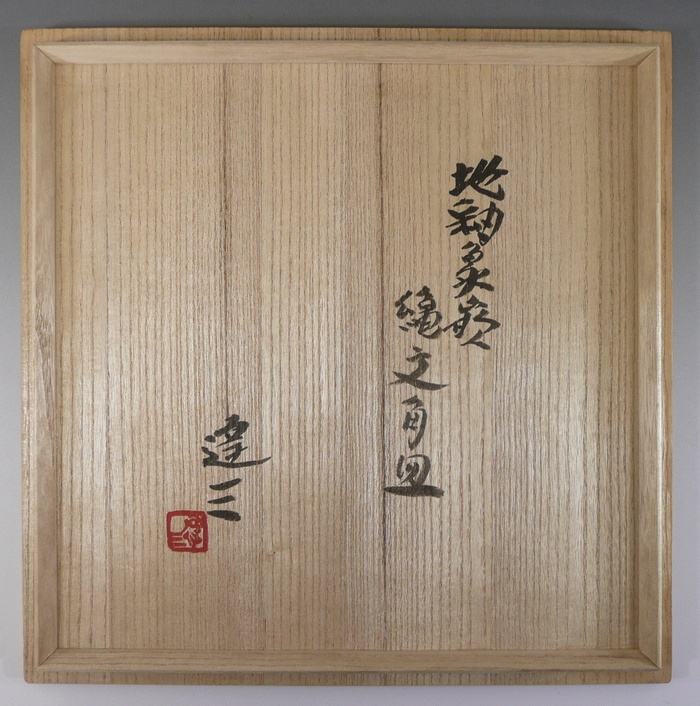 地釉象嵌
縄文角皿
達三